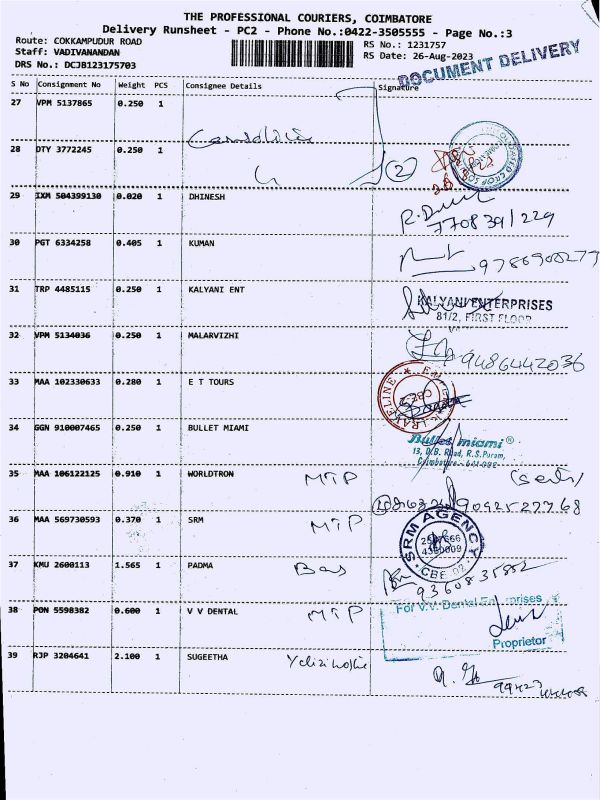 THE PROFESSIONAL COURIERS, COIMBATORE
Delivery Runsheet - PC2 - Phone No.:0422-3505555 - Page No.:3
Route: COKKAMPUDUR ROAD
RS No.: 1231757
Staff: VADIVANANDAN
RS Date: 26-Aug-2023
DRS No.: DCJB123175703
DOCUMENT DELIVERY
S No Consignment No Weight PCS Consignee Details Signature
27 VPM 5137865 0.250 1
28 DTY 3772245 0.250 1
2
29 IXM 504399130 0.020 1 DHINESH
770839/229
30 PGT 6334258 0.405 1 KUMAN
31 TRP 4485115 0.250 1 KALYANI ENT
KALYANI ENTERPRISES
81/2, FIRST FLOOR
32 VPM 5134036 0.250 1 MALARVIZHI
9486442036
33 MAA 102330633 0.280 1 E T TOURS
CBE-2
34 GGN 910007465 0.250 1 BULLET MIAMI
Bullet miami ®
13, D.B. Road, R.S.Puram,
Coimbatore - 641 002
35 MAA 106122125 0.910 1 WORLDTRON MTP
36 MAA 569730593 0.370 1 SRM MTP
SRM AGENCY
CBE 02
37 KMU 2600113 1.565 1 PADMA
9360835852
38 PON 5598382 0.600 1 V V DENTAL MTP
For V.V. Dental Enterprises
Proprietor
39 RJP 3204641 2.100 1 SUGEETHA